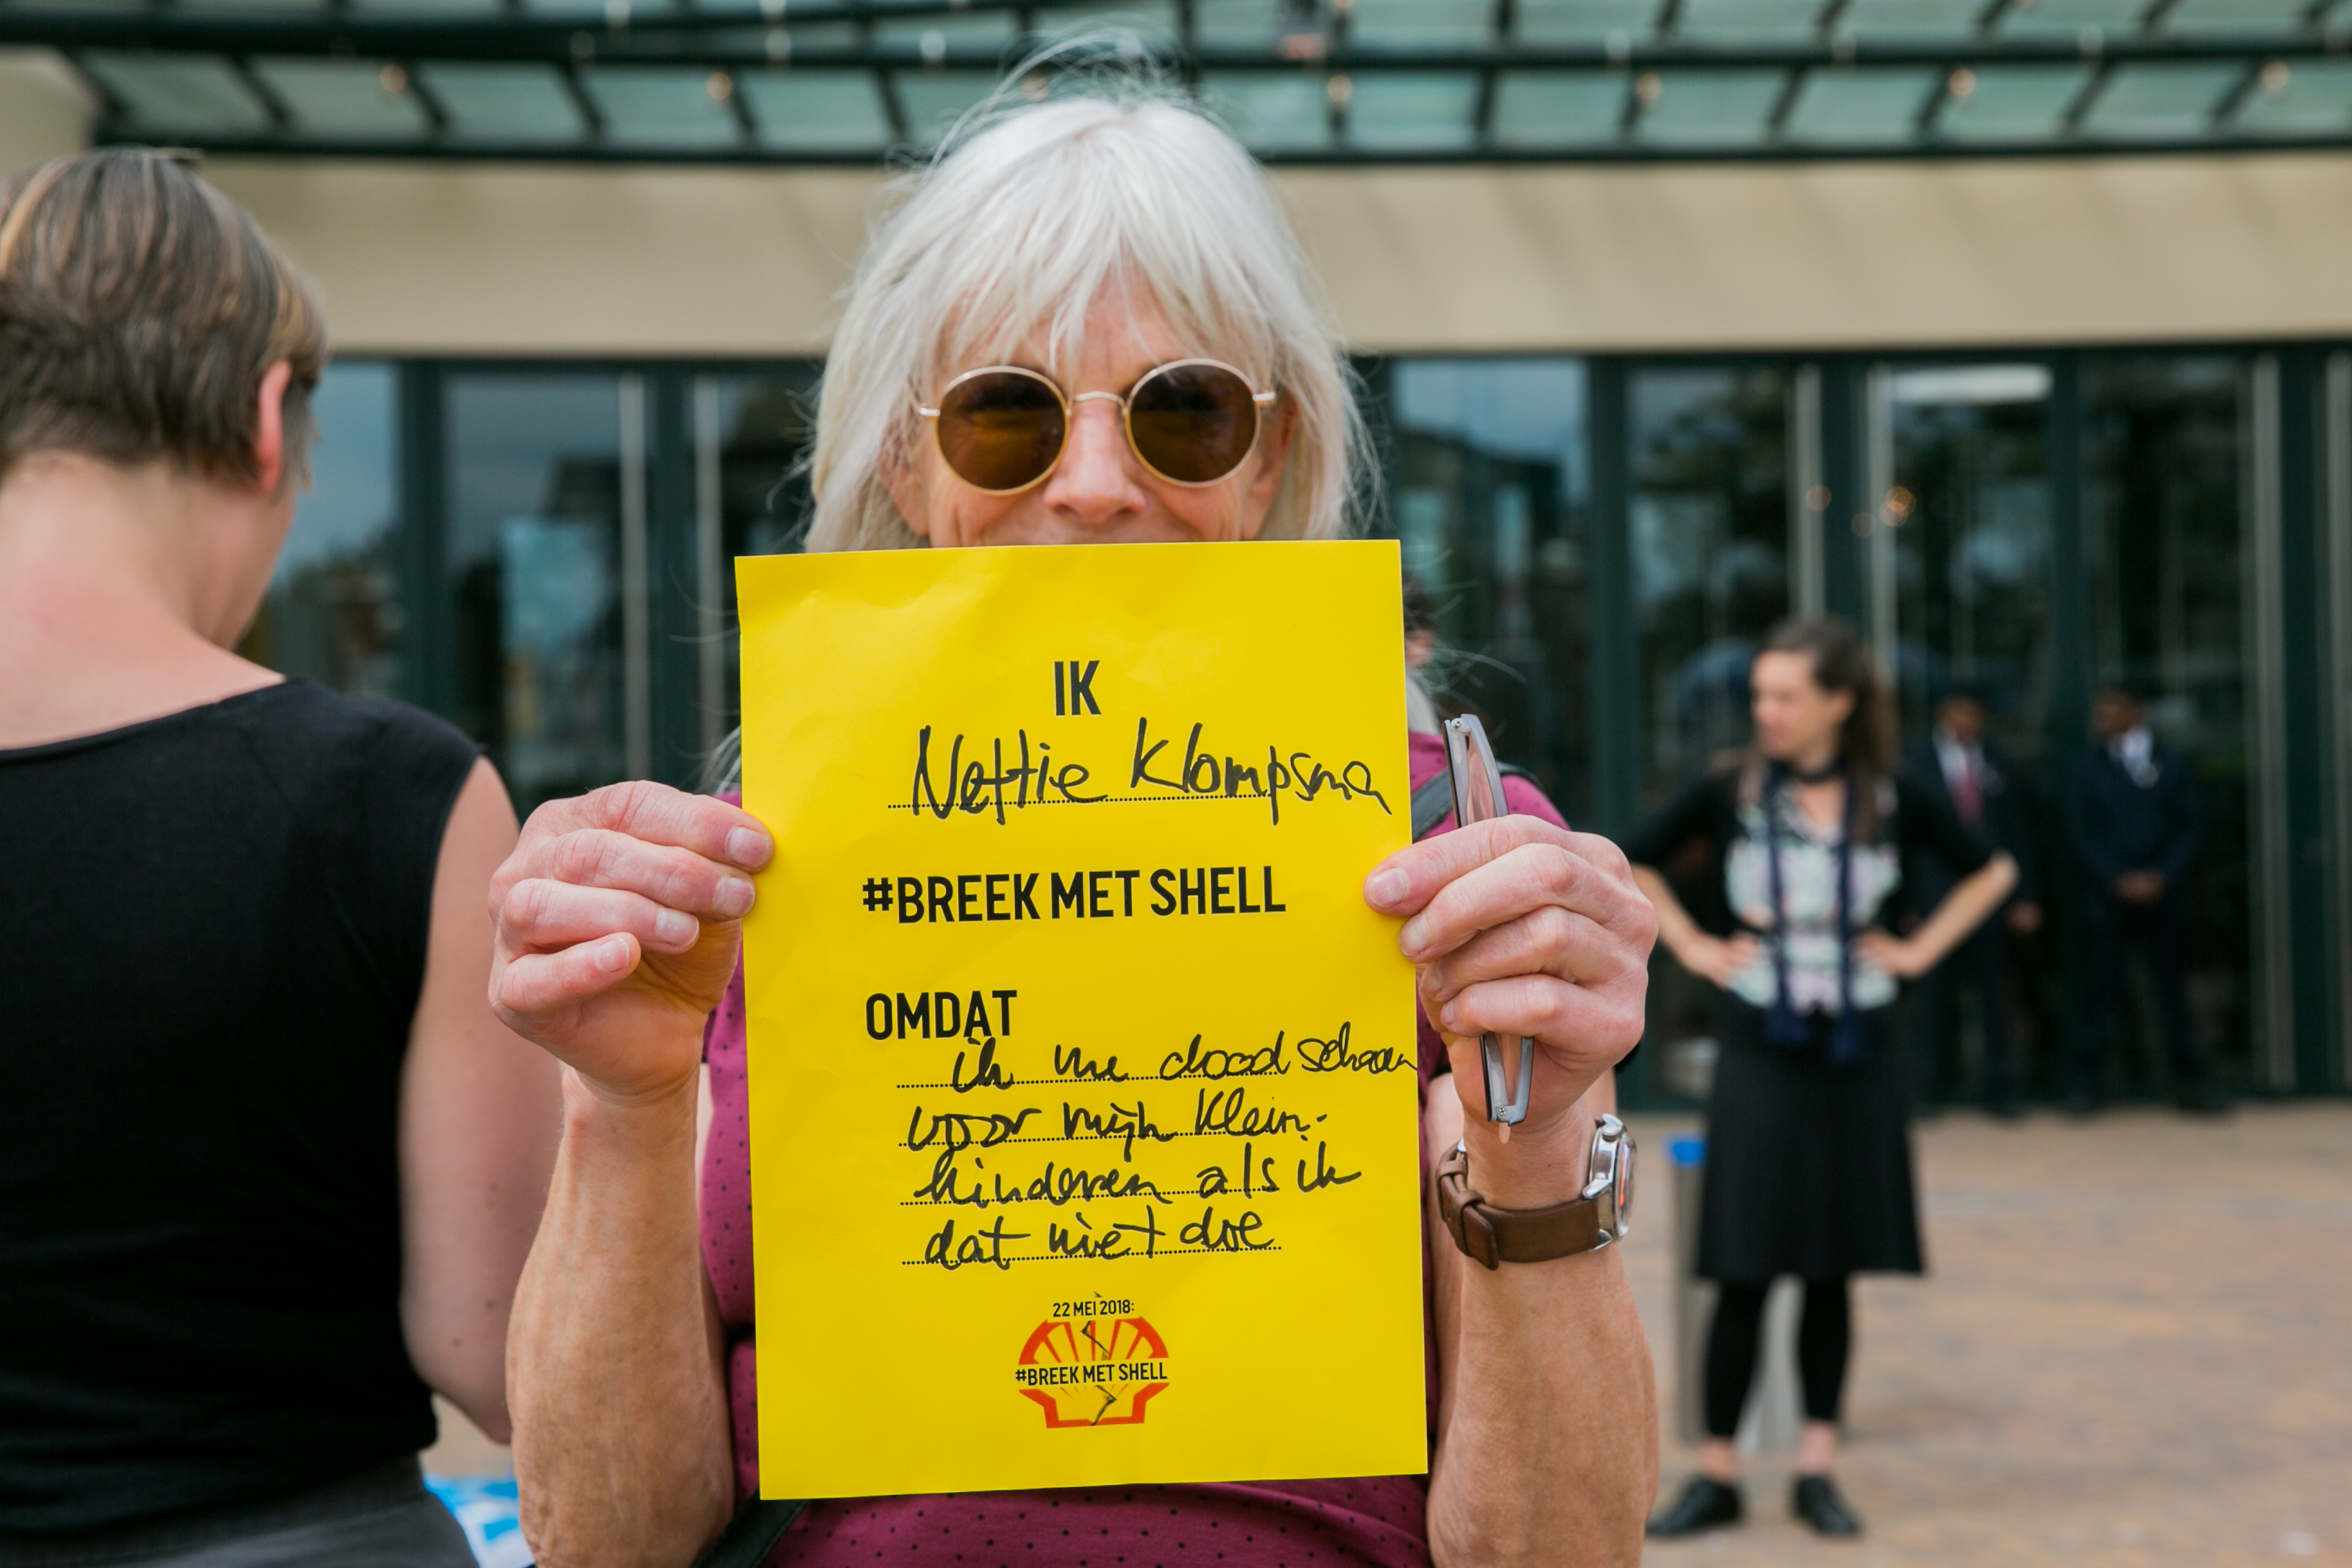 IK
Nettie Klompsma
#BREEK MET SHELL
OMDAT
ik me dood schaam
voor mijn klein-
kinderen als ik
dat niet doe
22 MEI 2018:
#BREEK MET SHELL